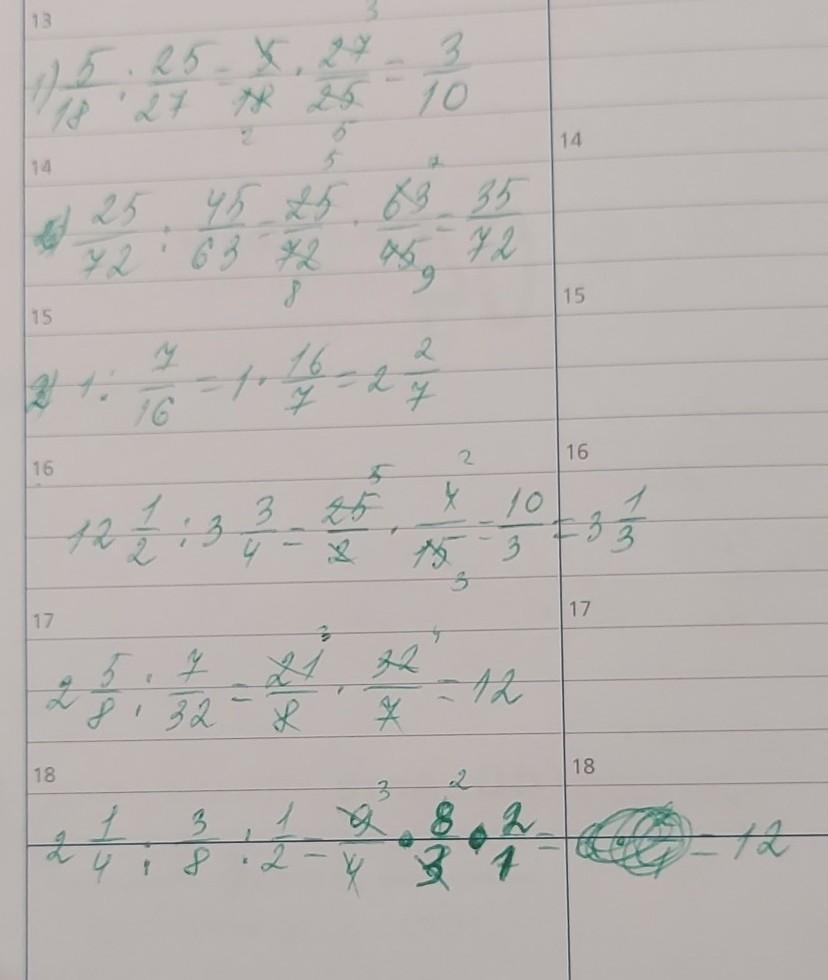 13
1) 5/18 : 25/27 = 5/18 · 27/25 = 3/10
3
2 5
14 14
25/72 : 45/63 = 25/72 · 63/45 = 35/72
5 7
8 9
15 15
2) 1 : 7/16 = 1 · 16/7 = 2 2/7
16 16
12 1/2 : 3 3/4 = 25/2 · 4/15 = 10/3 = 3 1/3
5 2
3
17 17
2 5/8 : 7/32 = 21/8 · 32/7 = 12
3 4
18 18
2 1/4 : 3/8 : 1/2 = 9/4 · 8/3 · 2/1 = = 12
3 2